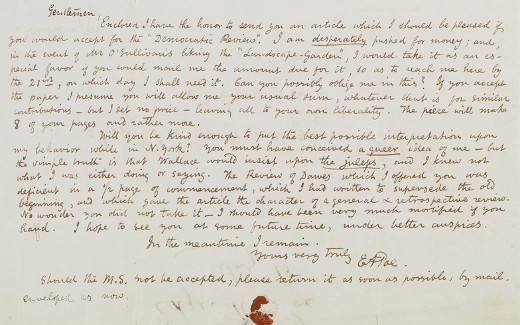 Gentlemen,
Enclosed I have the honor to send you an article which I should be pleased if
you would accept for the "Democratic Review". I am desperately pushed for money; and,
in the event of Mr O'Sullivan's liking the "Landscape-Garden", I would take it as an es-
pecial favor if you would mail me the amount due for it, so as to reach me here by
the 21rst, on which day I shall need it. Can you possibly oblige me in this? If you accept
the paper I presume you will allow me your usual sum, whatever that is for similar
contributions – but I set no price – leaving all to your own liberality. The piece will make
8 of your pages and rather more.
Will you be kind enough to put the best possible interpretation upon
my behavior while in N.York? You must have conceived a queer idea of me – but
the simple truth is that Wallace would insist upon the juleps, and I knew not
what I was either doing or saying. The Review of Dawes which I offered you was
deficient in a 1/2 page of commencement, which I had written to supersede the old
beginning, and which gave the article the character of a general & retrospective review.
No wonder you did not take it – I should have been very much mortified if you
had. I hope to see you at some future time, under better auspices.
In the meantime I remain.
Yours very truly
EAPoe.
Should the M.S. not be accepted, please return it as soon as possible, by mail.
enveloped as now.